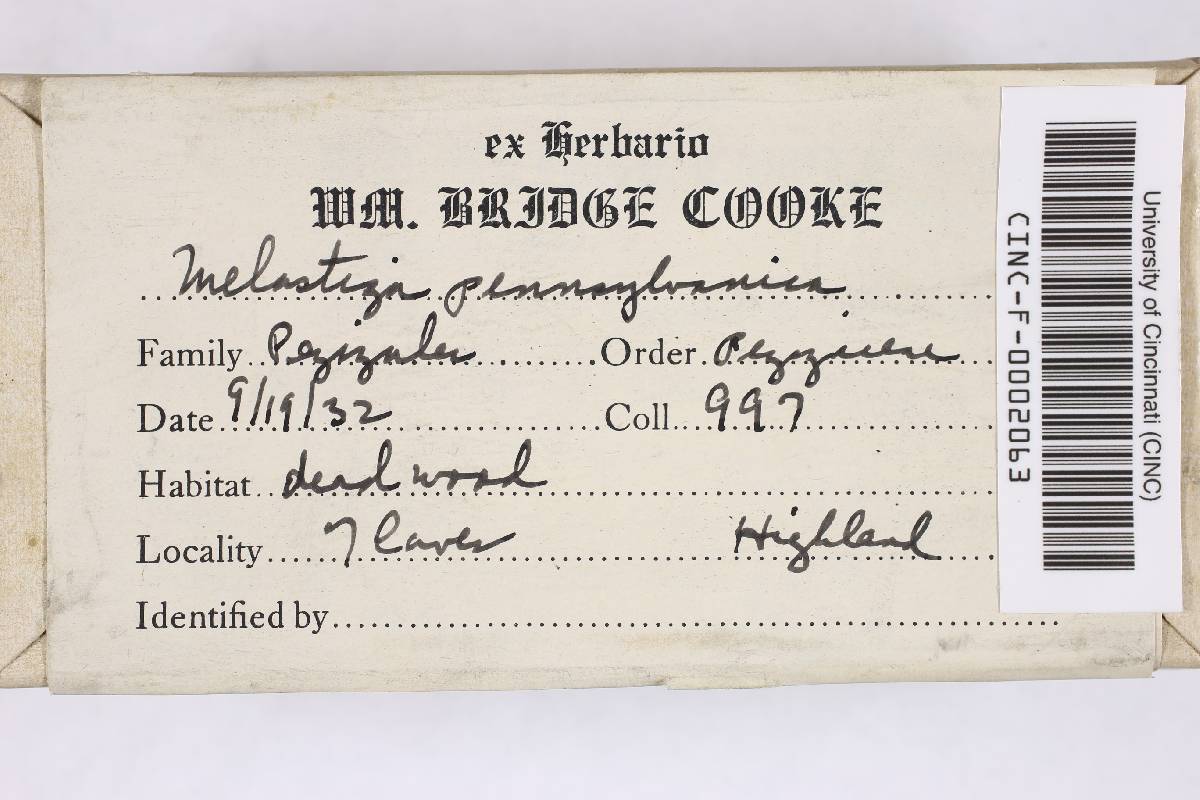 ex Herbario
WM. BRIDGE COOKE
Melastiza pennsylvanica
Family Pezizales Order Pezizineae
Date 9/19/32 Coll. 997
Habitat dead wood
Locality 7 Caves Highland
Identified by
CINC-F-0002063
University of Cincinnati (CINC)